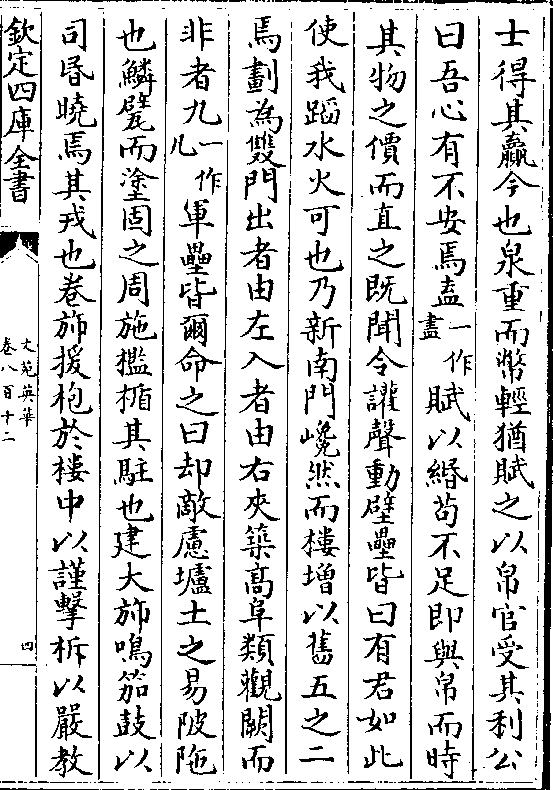 士得其贏今也泉重而幣輕猶賦之以帛官受其利公
曰吾心有不安焉盍一作盡賦以緡苟不足即與帛而時
其物之價而直之既聞令讙聲動壁壘皆曰有君如此
使我蹈水火可也乃新南門巉然而樓增以舊五之二
焉劃為雙門出者由左入者由右夾築高阜類觀闕而
非者九一作凡軍壘皆爾命之曰却敵慮壚土之易陂陁
也鱗甓而塗固之周施檻楯其駐也建大斾鳴笳鼓以
司昏曉焉其戎也卷斾援枹於樓中以謹擊柝以嚴教
欽定四庫全書
文苑英華
卷八百十二
四